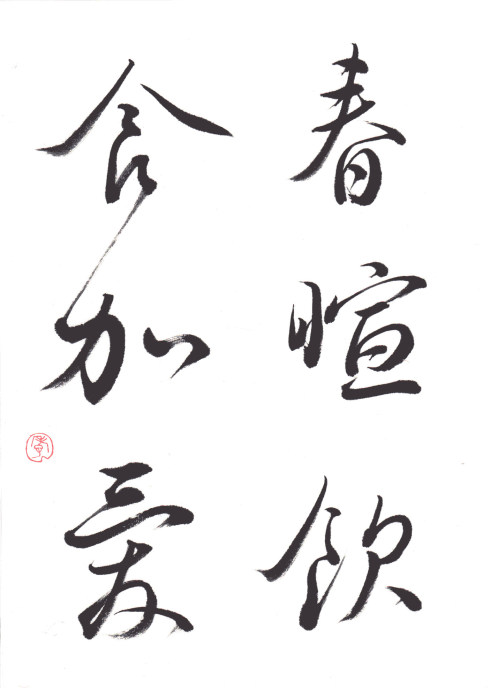 春暄飲
食加愛